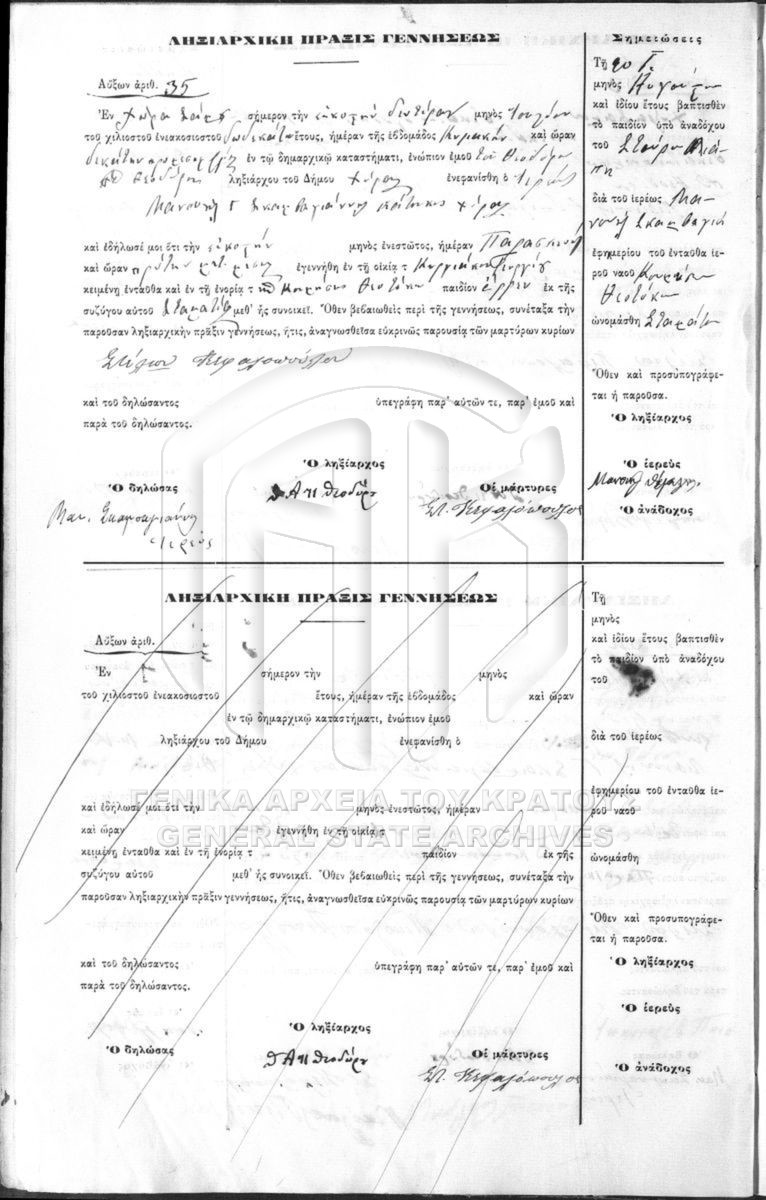 ΛΗΞΙΑΡΧΙΚΗ ΠΡΑΞΙΣ ΓΕΝΝΗΣΕΩΣ
Αὔξων ἀριθ. 35
Ἐν σήμερον τὴν εἰκοστήν δευτέραν μηνὸς Ἰουλίου
τοῦ χιλιοστοῦ ἐνεακοσιοστοῦ δωδεκάτου ἔτους, ἡμέραν τῆς ἑβδομάδος Κυριακήν καὶ ὥραν
δεκάτην ἐν τῷ δημαρχικῷ καταστήματι, ἐνώπιον ἐμοῦ
ληξιάρχου τοῦ Δήμου Χώρας ἐνεφανίσθη ὁ Ἱερεύς
Μανουήλ Γ.
καὶ ἐδήλωσέ μοι ὅτι τὴν εἰκοστήν μηνὸς ἐνεστῶτος, ἡμέραν Παρασκευήν
καὶ ὥραν πρώτην ἐγεννήθη ἐν τῇ οἰκίᾳ τ
κειμένῃ ἐνταῦθα καὶ ἐν τῇ ἐνορίᾳ τ Θεοτόκου παιδίον ἄρρεν ἐκ τῆς
συζύγου αὐτοῦ μεθ᾽ ἧς συνοικεῖ. Ὅθεν βεβαιωθεὶς περὶ τῆς γεννήσεως, συνέταξα τὴν
παροῦσαν ληξιαρχικὴν πρᾶξιν γεννήσεως, ἥτις, ἀναγνωσθεῖσα εὐκρινῶς παρουσίᾳ τῶν μαρτύρων κυρίων
Κεφαλοπούλου
καὶ τοῦ δηλώσαντος ὑπεγράφη παρ᾽ αὐτῶν τε, παρ᾽ ἐμοῦ καὶ
παρὰ τοῦ δηλώσαντος.
Ὁ ληξίαρχος
Ὁ δηλώσας Οἱ μάρτυρες
Μαν. Ἱερεύς
Κεφαλόπουλος
Σημειώσεις
Τῇ 20
μηνὸς Αὐγούστου
καὶ ἰδίου ἔτους βαπτισθὲν
τὸ παιδίον ὑπὸ ἀναδόχου
τοῦ Σταύρου
διὰ τοῦ ἱερέως Μα-
νουήλ
ἐφημερίου τοῦ ἐνταῦθα ἱε-
ροῦ ναοῦ
Θεοτόκου
ὠνομάσθη
Ὅθεν καὶ προσυπογράφε-
ται ἡ παροῦσα.
Ὁ ληξίαρχος
Ὁ ἱερεὺς
Ὁ ἀνάδοχος
ΛΗΞΙΑΡΧΙΚΗ ΠΡΑΞΙΣ ΓΕΝΝΗΣΕΩΣ
Αὔξων ἀριθ.
Ἐν σήμερον τὴν μηνὸς
τοῦ χιλιοστοῦ ἐνεακοσιοστοῦ ἔτους, ἡμέραν τῆς ἑβδομάδος καὶ ὥραν
ἐν τῷ δημαρχικῷ καταστήματι, ἐνώπιον ἐμοῦ
ληξιάρχου τοῦ Δήμου ἐνεφανίσθη ὁ
καὶ ἐδήλωσέ μοι ὅτι τὴν μηνὸς ἐνεστῶτος, ἡμέραν
καὶ ὥραν ἐγεννήθη ἐν τῇ οἰκίᾳ τ
κειμένῃ ἐνταῦθα καὶ ἐν τῇ ἐνορίᾳ τ παιδίον ἐκ τῆς
συζύγου αὐτοῦ μεθ᾽ ἧς συνοικεῖ. Ὅθεν βεβαιωθεὶς περὶ τῆς γεννήσεως, συνέταξα τὴν
παροῦσαν ληξιαρχικὴν πρᾶξιν γεννήσεως, ἥτις, ἀναγνωσθεῖσα εὐκρινῶς παρουσίᾳ τῶν μαρτύρων κυρίων
καὶ τοῦ δηλώσαντος ὑπεγράφη παρ᾽ αὐτῶν τε, παρ᾽ ἐμοῦ καὶ
παρὰ τοῦ δηλώσαντος.
Ὁ ληξίαρχος
Ὁ δηλώσας Οἱ μάρτυρες
Κεφαλόπουλος
Τῇ
μηνὸς
καὶ ἰδίου ἔτους βαπτισθὲν
τὸ παιδίον ὑπὸ ἀναδόχου
τοῦ
διὰ τοῦ ἱερέως
ἐφημερίου τοῦ ἐνταῦθα ἱε-
ροῦ ναοῦ
ὠνομάσθη
Ὅθεν καὶ προσυπογράφε-
ται ἡ παροῦσα.
Ὁ ληξίαρχος
Ὁ ἱερεὺς
Ὁ ἀνάδοχος
ΓΕΝΙΚΑ ΑΡΧΕΙΑ ΤΟΥ ΚΡΑΤΟΥΣ
GENERAL STATE ARCHIVES